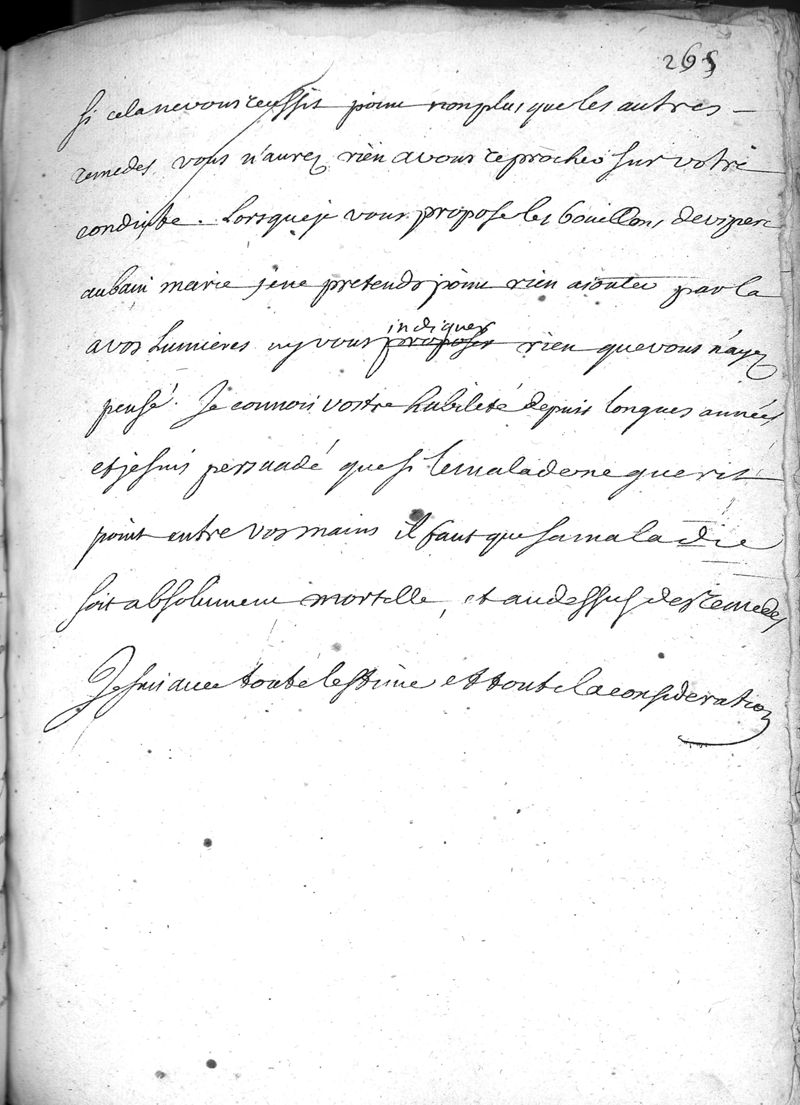 265
si cela ne vous reussit point non plus que les autres
remedes vous n'aurez rien a vous reprocher sur votre
conduite. Lorsque je vous propose les bouillons de vipere
au bain marie je ne pretends point rien aiouter par la
a vos lumieres ny vous indiquer rien que vous n'ayez
pensé. Je connois vostre habileté depuis longues années
et je suis persuadé que si le malade ne guerit
point entre vos mains il faut que sa maladie
soit absolument mortelle, et au dessus des remedes
Je suis avec toute lestime et toute la consideration